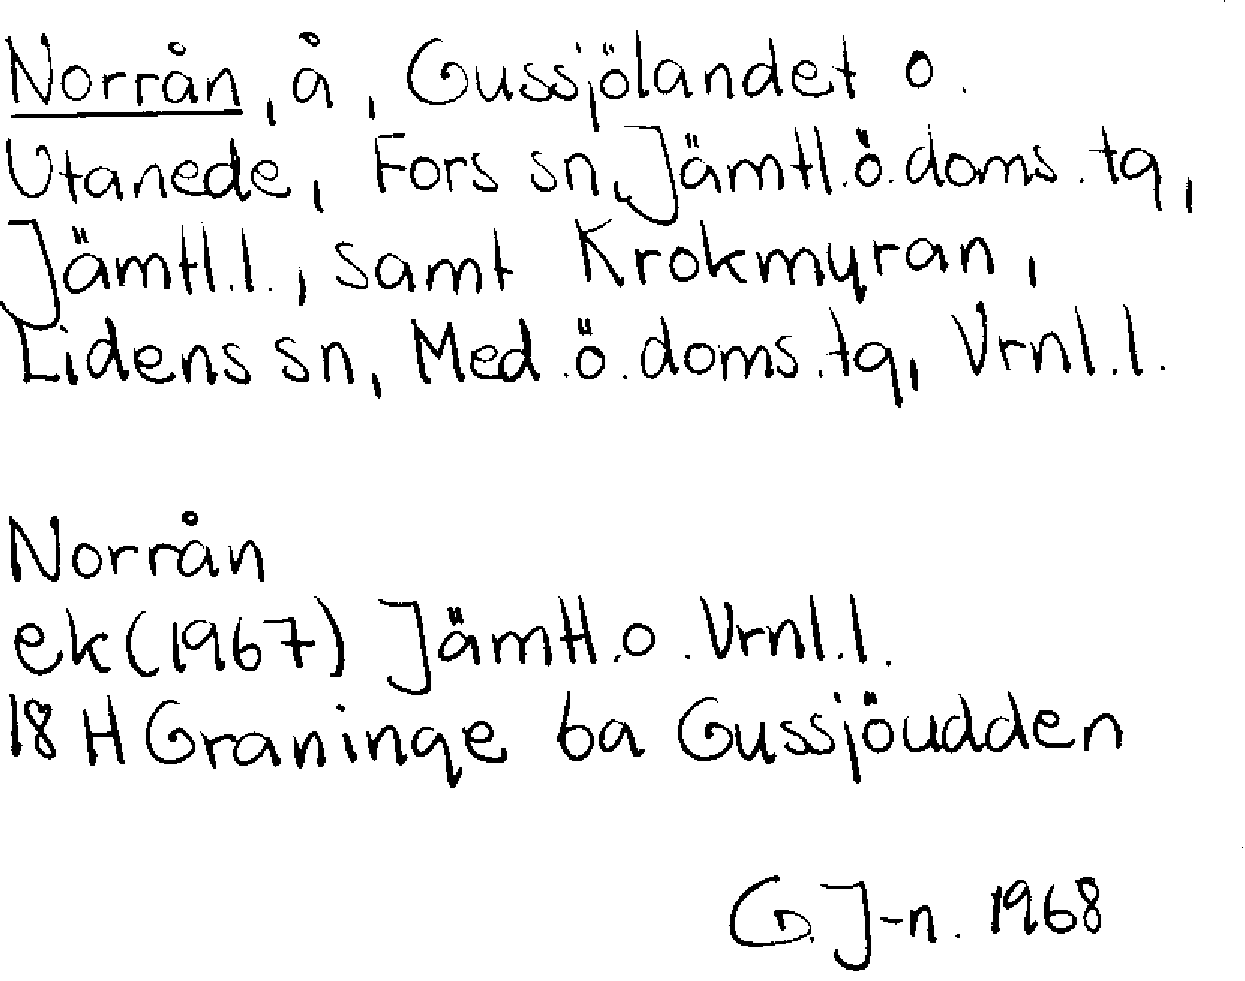 Norrån, å, Gussjölandet o.
Utanede, Fors sn, Jämtl.ö.doms.tg,
Jämtl.l., samt Krokmyran,
Lidens sn, Med.ö.doms.tg, Vrnl.l.
Norrån
ek(1967) Jämtl.o.Vrnl.l.
18 H Graninge 6a Gussjöudden
G.J-n. 1968